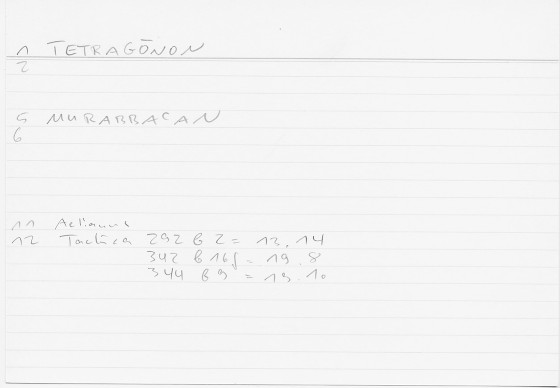 1 TETRAGŌNON
2
5 MURABBACAN
6
11 Aelianus
12 Tactica 292 b 2 = 13.14
342 b 16f = 19.8
344 b 9 = 19.10